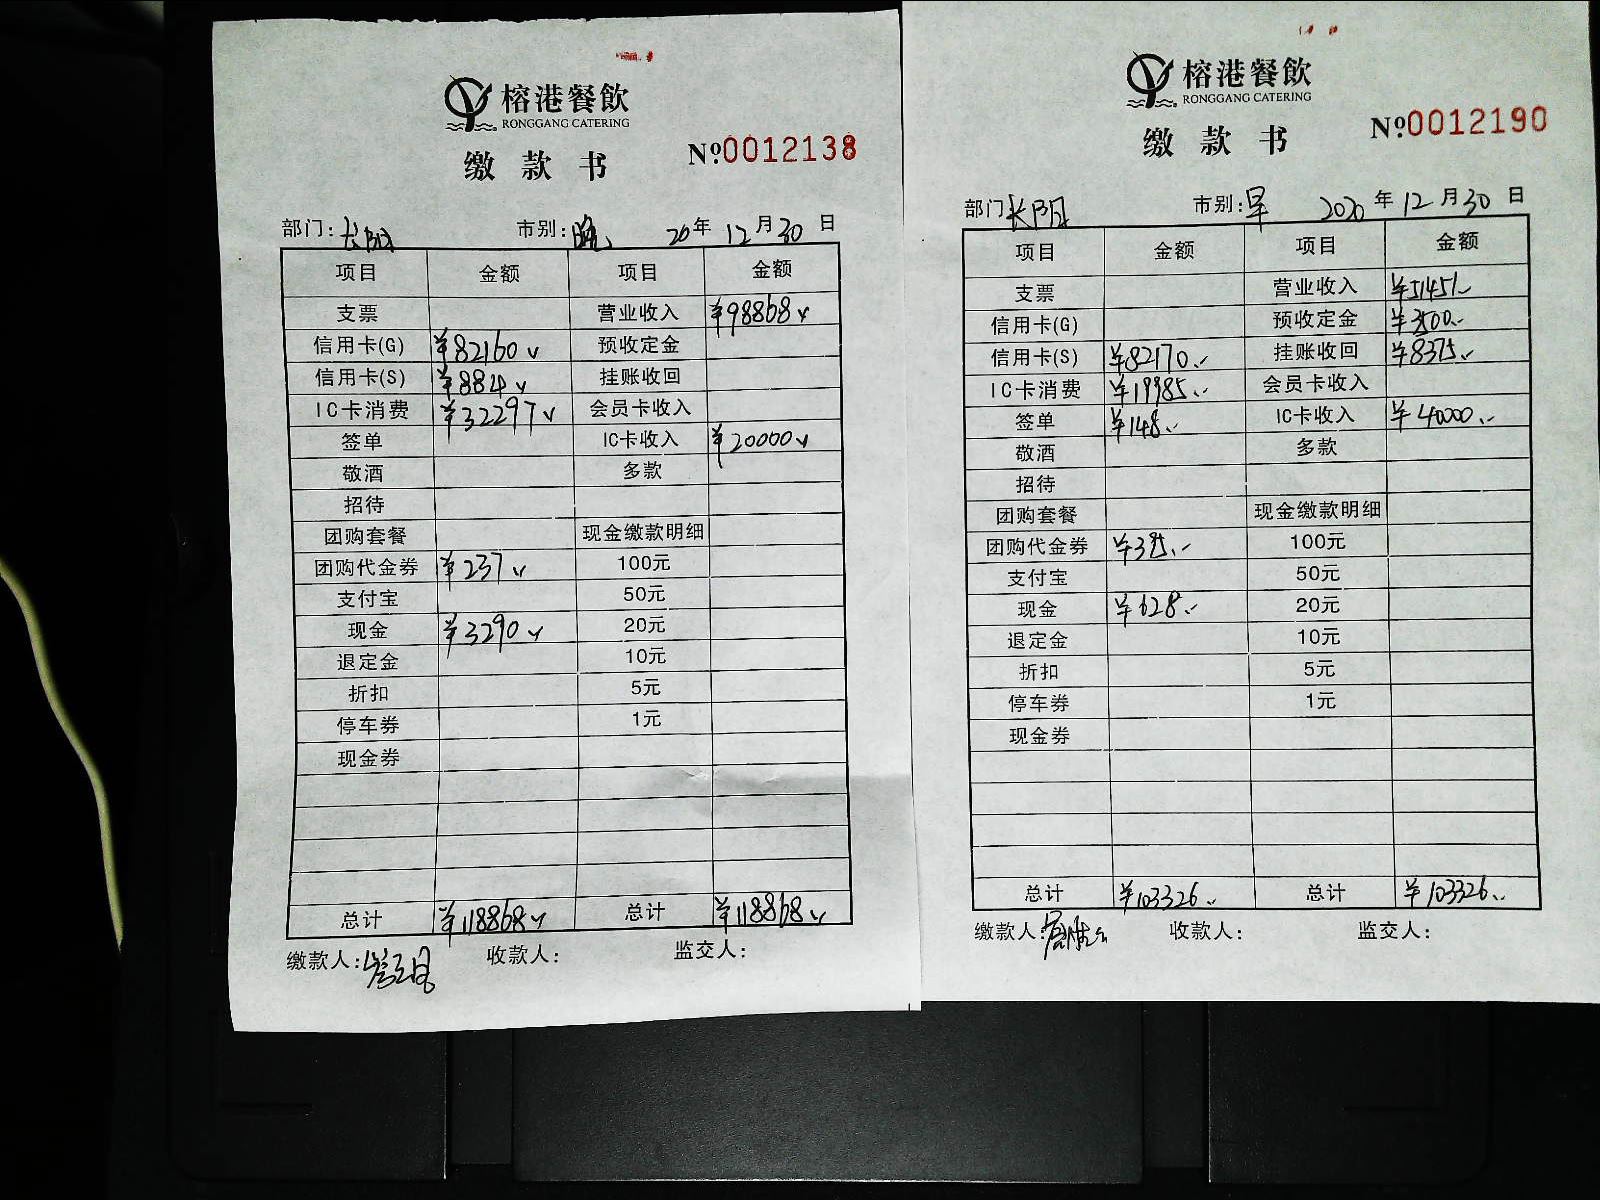 榕港餐飲
RONGGANG CATERING
缴款书
№0012138
部门:长阳 市别:晚 20年12月30日
项目 金额 项目 金额
支票 营业收入 ¥98868
信用卡(G) ¥82160 预收定金
信用卡(S) ¥884 挂账收回
IC卡消费 ¥32297 会员卡收入
签单 IC卡收入 ¥20000
敬酒 多款
招待
团购套餐 现金缴款明细
团购代金券 ¥237 100元
支付宝 50元
现金 ¥3290 20元
退定金 10元
折扣 5元
停车券 1元
现金券
总计 ¥118868 总计 ¥118868
缴款人: 收款人: 监交人:
榕港餐飲
RONGGANG CATERING
缴款书
№0012190
部门长阳 市别:早 2020年12月30日
项目 金额 项目 金额
支票 营业收入 ¥51451
信用卡(G) 预收定金 ¥3500
信用卡(S) ¥82170 挂账收回 ¥8375
IC卡消费 ¥19985 会员卡收入
签单 ¥148 IC卡收入 ¥40000
敬酒 多款
招待
团购套餐 现金缴款明细
团购代金券 ¥395 100元
支付宝 50元
现金 ¥628 20元
退定金 10元
折扣 5元
停车券 1元
现金券
总计 ¥103326 总计 ¥103326
缴款人: 收款人: 监交人: